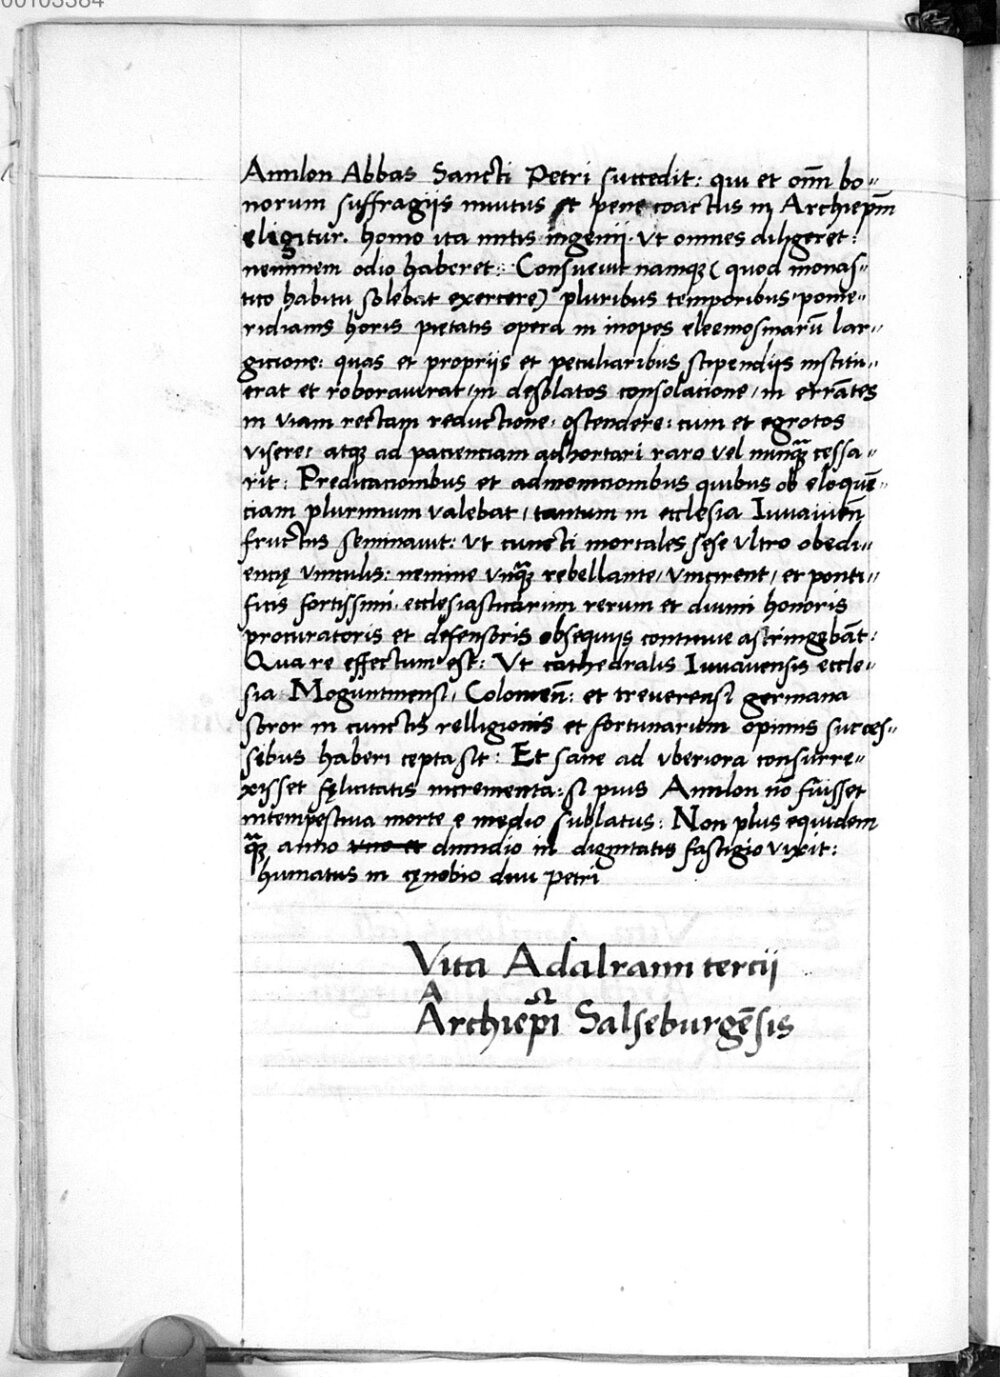 00103384
Amilon Abbas Sancti Petri succedit: qui et om̄ bo-
norum suffragijs inuitus et pene coactus in Archiepm̄
eligitur. homo ita mitis ingenij. Vt omnes diligeret:
neminem odio haberet: Consueuit namqꝫ (quod monas-
tico habitu solebat exercere) pluribus temporibus pome-
ridianis horis pietatis opera in inopes eleemosinarū lar-
gicione: quas et proprijs et peculiaribus stipendijs institu-
erat et roborauerat, in desolatos consolacione, in errātes
in viam rectam reductione, ostendere: cum et egrotos
visere, atqꝫ ad pacienciam adhortari raro vel nunqꝫ cessa-
rit: Predicacionibus et admonicionibus quibus ob eloquē-
ciam plurimum valebat, tantum in ecclesia Iuuauien̄
fructus seminauit: Vt cuncti mortales sese vltro obedi-
encię vinculis: nemine vnqꝫ rebellante, vincirent, et ponti-
ficis fortissimi ecclesiasticarum rerum et diuini honoris
procuratoris et defensoris obsequijs continue astringebāt:
Quare effectum est: Vt cathedralis Iuuauensis eccle-
sia Moguntinensi, Colonien̄: et treuerensi germana
soror in cunctis relligionis et fortunarum opimis succes-
sibus haberi cepta sit: Et sane ad vberiora consurre-
xisset fęlicitatis incrementa: si pius Amilon nō fuisset
intempestiua morte e medio sublatus: Non plus equidem
qꝫ anno vno et dimidio in dignitatis fastigio vixit:
humatus in cęnobio diui petri
Vita Adalrami tercij
A
Archiepi Salseburgēsis